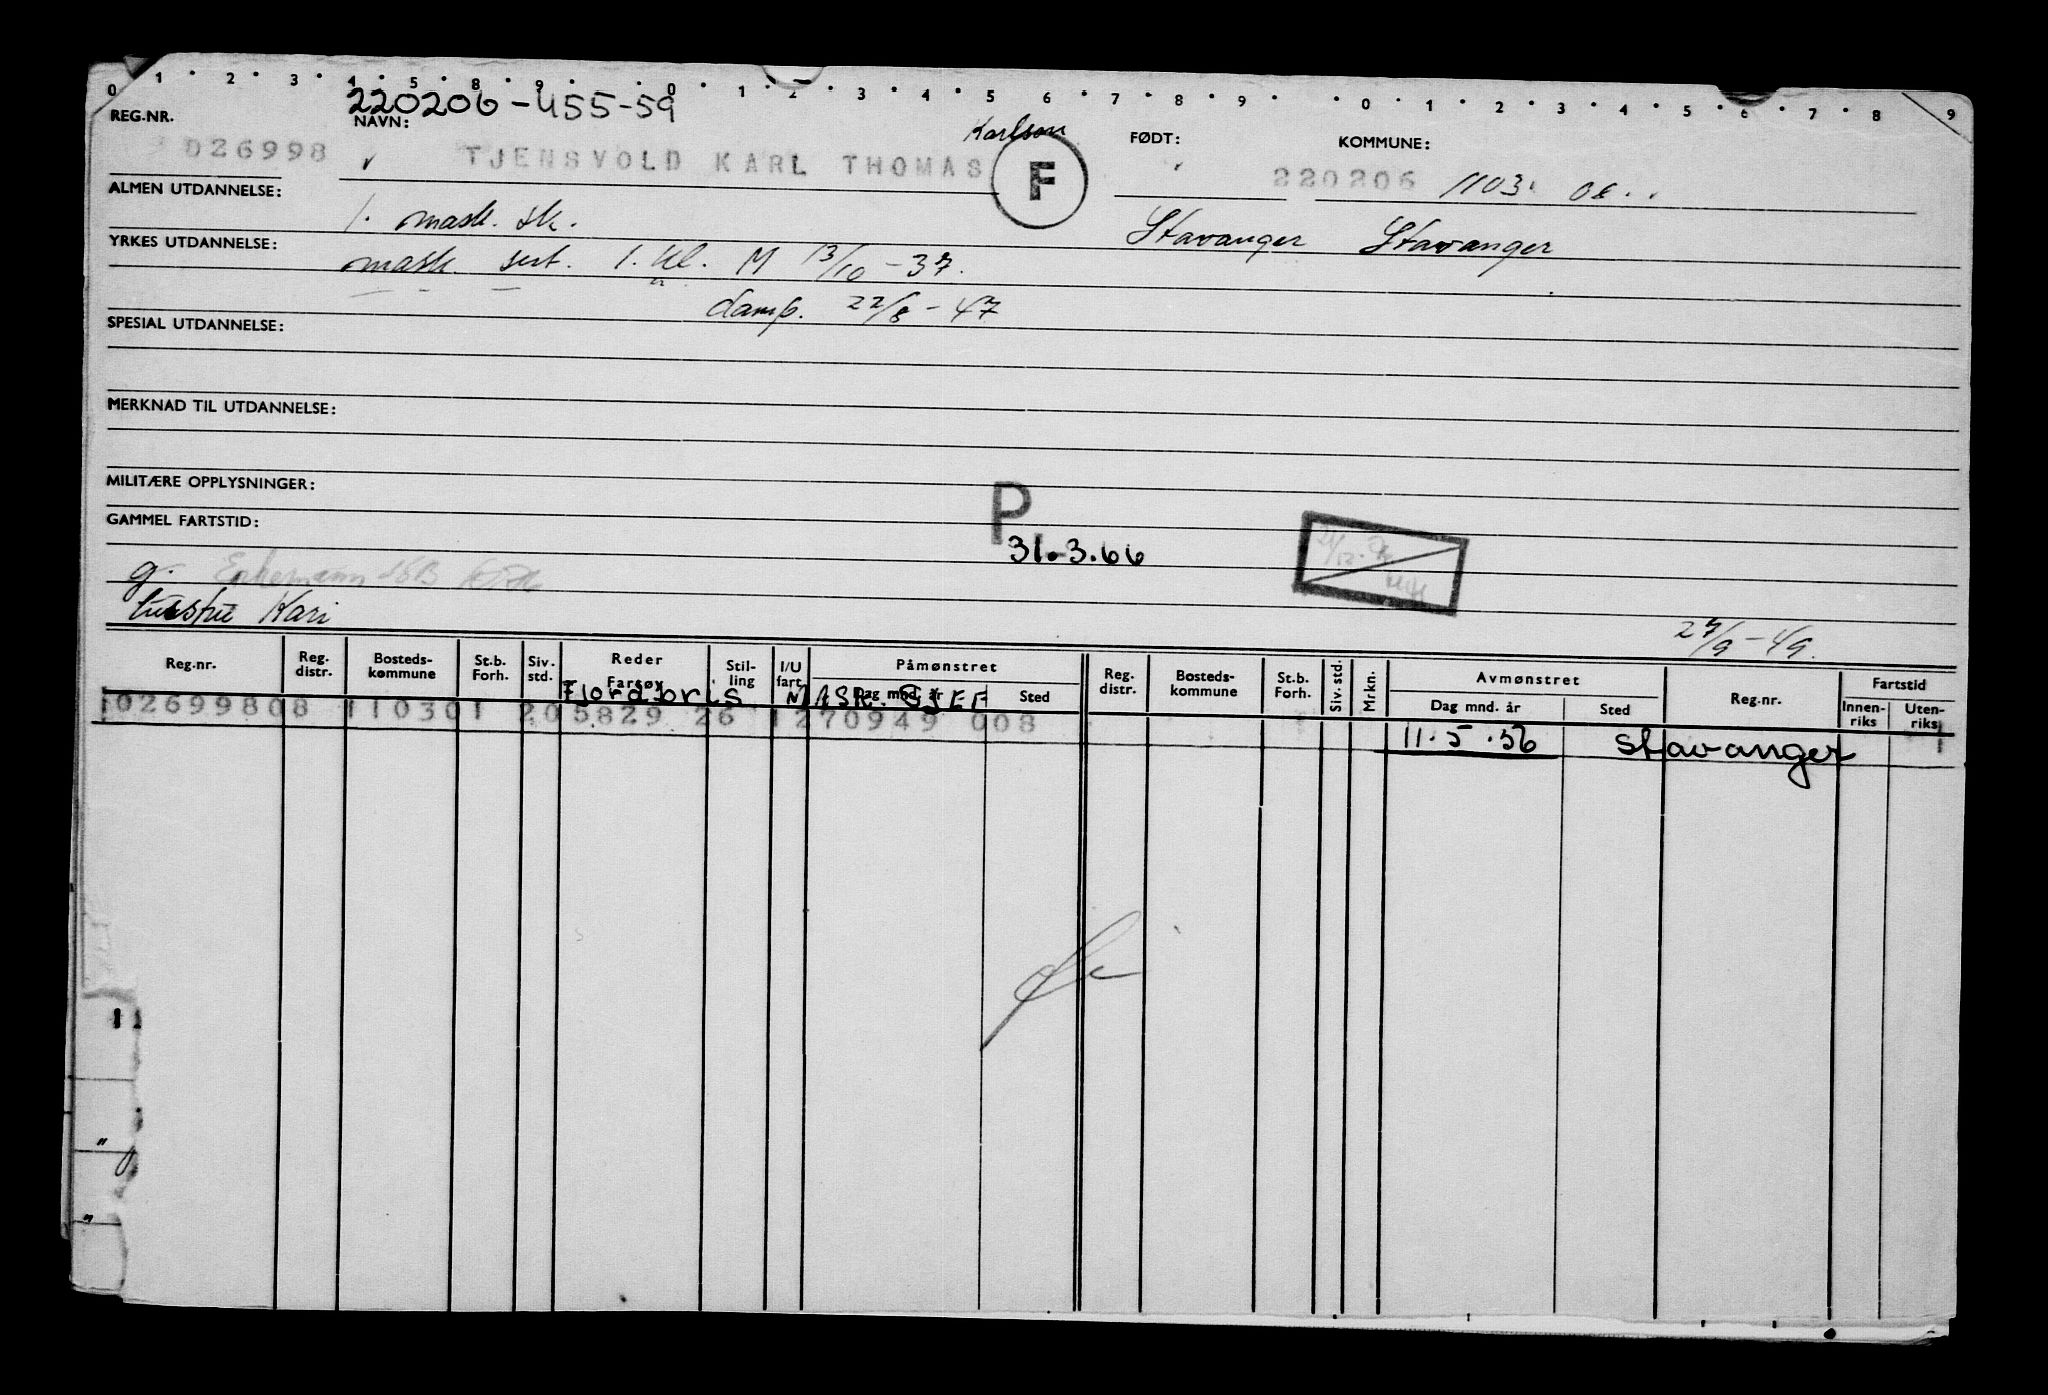 0 1 2 3 4 5 8 9 0 1 2 3 4 5 6 7 8 9 0 1 2 3 4 5 6 7 8 9
220206-455-59
REG.NR. NAVN: Karlson FØDT: KOMMUNE:
026998 TJENSVOLD KARL THOMAS F 220206 1103
ALMEN UTDANNELSE: 1. mask. sk. Stavanger Stavanger
YRKES UTDANNELSE: mask. sert. 1. kl. M 13/10-37.
damp. 22/8-47
SPESIAL UTDANNELSE:
MERKNAD TIL UTDANNELSE:
MILITÆRE OPPLYSNINGER:
P
GAMMEL FARTSTID:
31.3.66
g. Enkemann
hustru Kari
27/9-49.
Reg.nr. Reg. distr. Bosteds-kommune St.b. Forh. Siv. std. Reder Farsøy Stil-ling I/U fart Påmønstret Dag mnd. år Sted Reg. distr. Bosteds-kommune St.b. Forh. Siv. std. Mrkn. Avmønstret Dag mnd. år Sted Reg.nr. Fartstid Innen-riks Uten-riks
Fjordbris MASK. SJEF
102699808 110301 205829 26 1270949 008 1
11.5.56 Stavanger